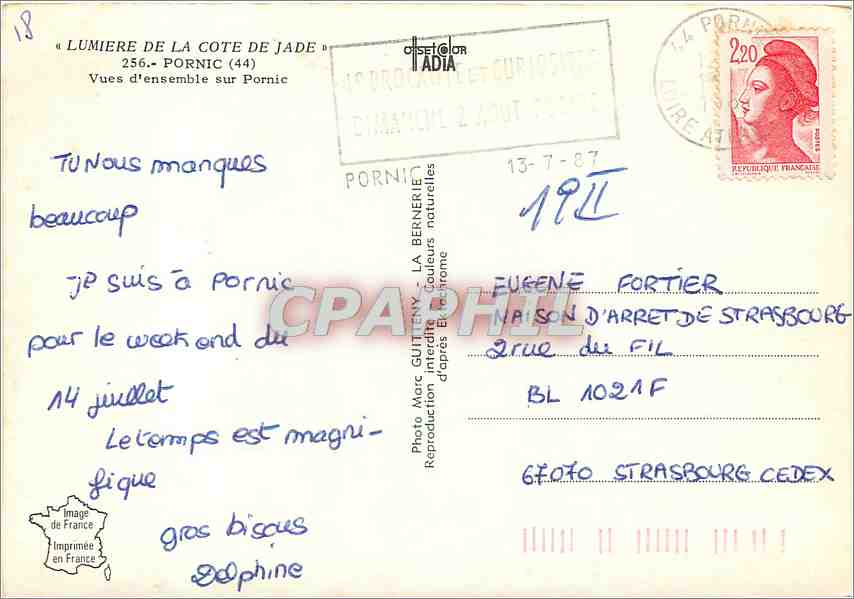 18
« LUMIERE DE LA COTE DE JADE »
256.- PORNIC (44)
Vues d'ensemble sur Pornic
offset color
IADIA
BROCANTE ET CURIOSITES
DIMANCHE 2 AOUT
PORNIC
13-7-87
44 PORNIC
LOIRE ATLAN
2,20
POSTES
REPUBLIQUE FRANÇAISE
TU NOUS manques
beaucoup
Je suis à Pornic
pour le week end du
14 juillet
Le temps est magni-
fique
gros bisous
Delphine
Photo Marc GUITTENY - LA BERNERIE
Reproduction interdite Couleurs naturelles
d'après Ektachrome
19 II
EUGENE FORTIER
MAISON D'ARRET DE STRASBOURG
2 rue du FIL
BL 1021F
67070 STRASBOURG CEDEX
CPAPHIL
Image
de France
Imprimée
en France